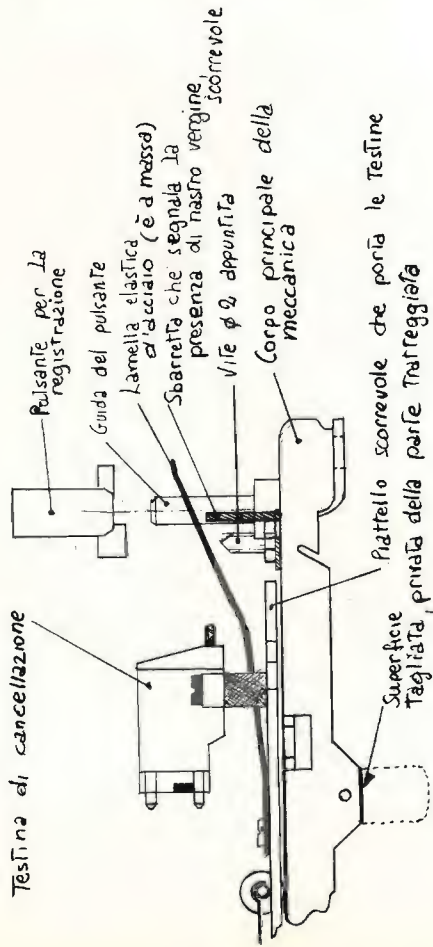 Testina di cancellazione
Pulsante per la
registrazione
Guida del pulsante
Lamella elastica
d'acciaio (è a massa)
Sbarretta che segnala la
presenza di nastro vergine,
scorrevole
Vite φ2 appuntita
Corpo principale della
meccanica
Piattello scorrevole che porta le testine
Superficie
tagliata, privata della parte tratteggiata